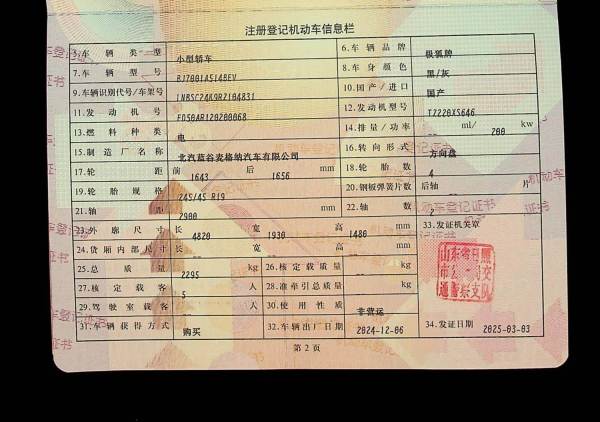 注册登记机动车信息栏
5.车辆类型 小型轿车 6.车辆品牌 极狐牌
7.车辆型号 BJ7001A5148EV 8.车身颜色 黑/灰
9.车辆识别代号/车架号 LNBSC24K9RZ104831 10.国产/进口 国产
11.发动机号 FD50AR120200068 12.发动机型号 TZ220XS646
13.燃料种类 电 14.排量/功率 ml/ 200 kw
15.制造厂名称 北汽蓝谷麦格纳汽车有限公司 16.转向形式 方向盘
17.轮距 前 1643 后 1656 mm 18.轮胎数 4
19.轮胎规格 245/45 R19 20.钢板弹簧片数 后轴 片
21.轴距 2900 mm 22.轴数 2
23.外廓尺寸 长 4820 宽 1930 高 1480 mm 33.发证机关章
24.货厢内部尺寸 长 宽 高 mm
25.总质量 2295 kg 26.核定载质量 kg
27.核定载客 5 人 28.准牵引总质量 kg
29.驾驶室载客 人 30.使用性质 非营运
31.车辆获得方式 购买 32.车辆出厂日期 2024-12-06 34.发证日期 2025-03-03
山东省日照
市公安局交
通警察支队
第2页